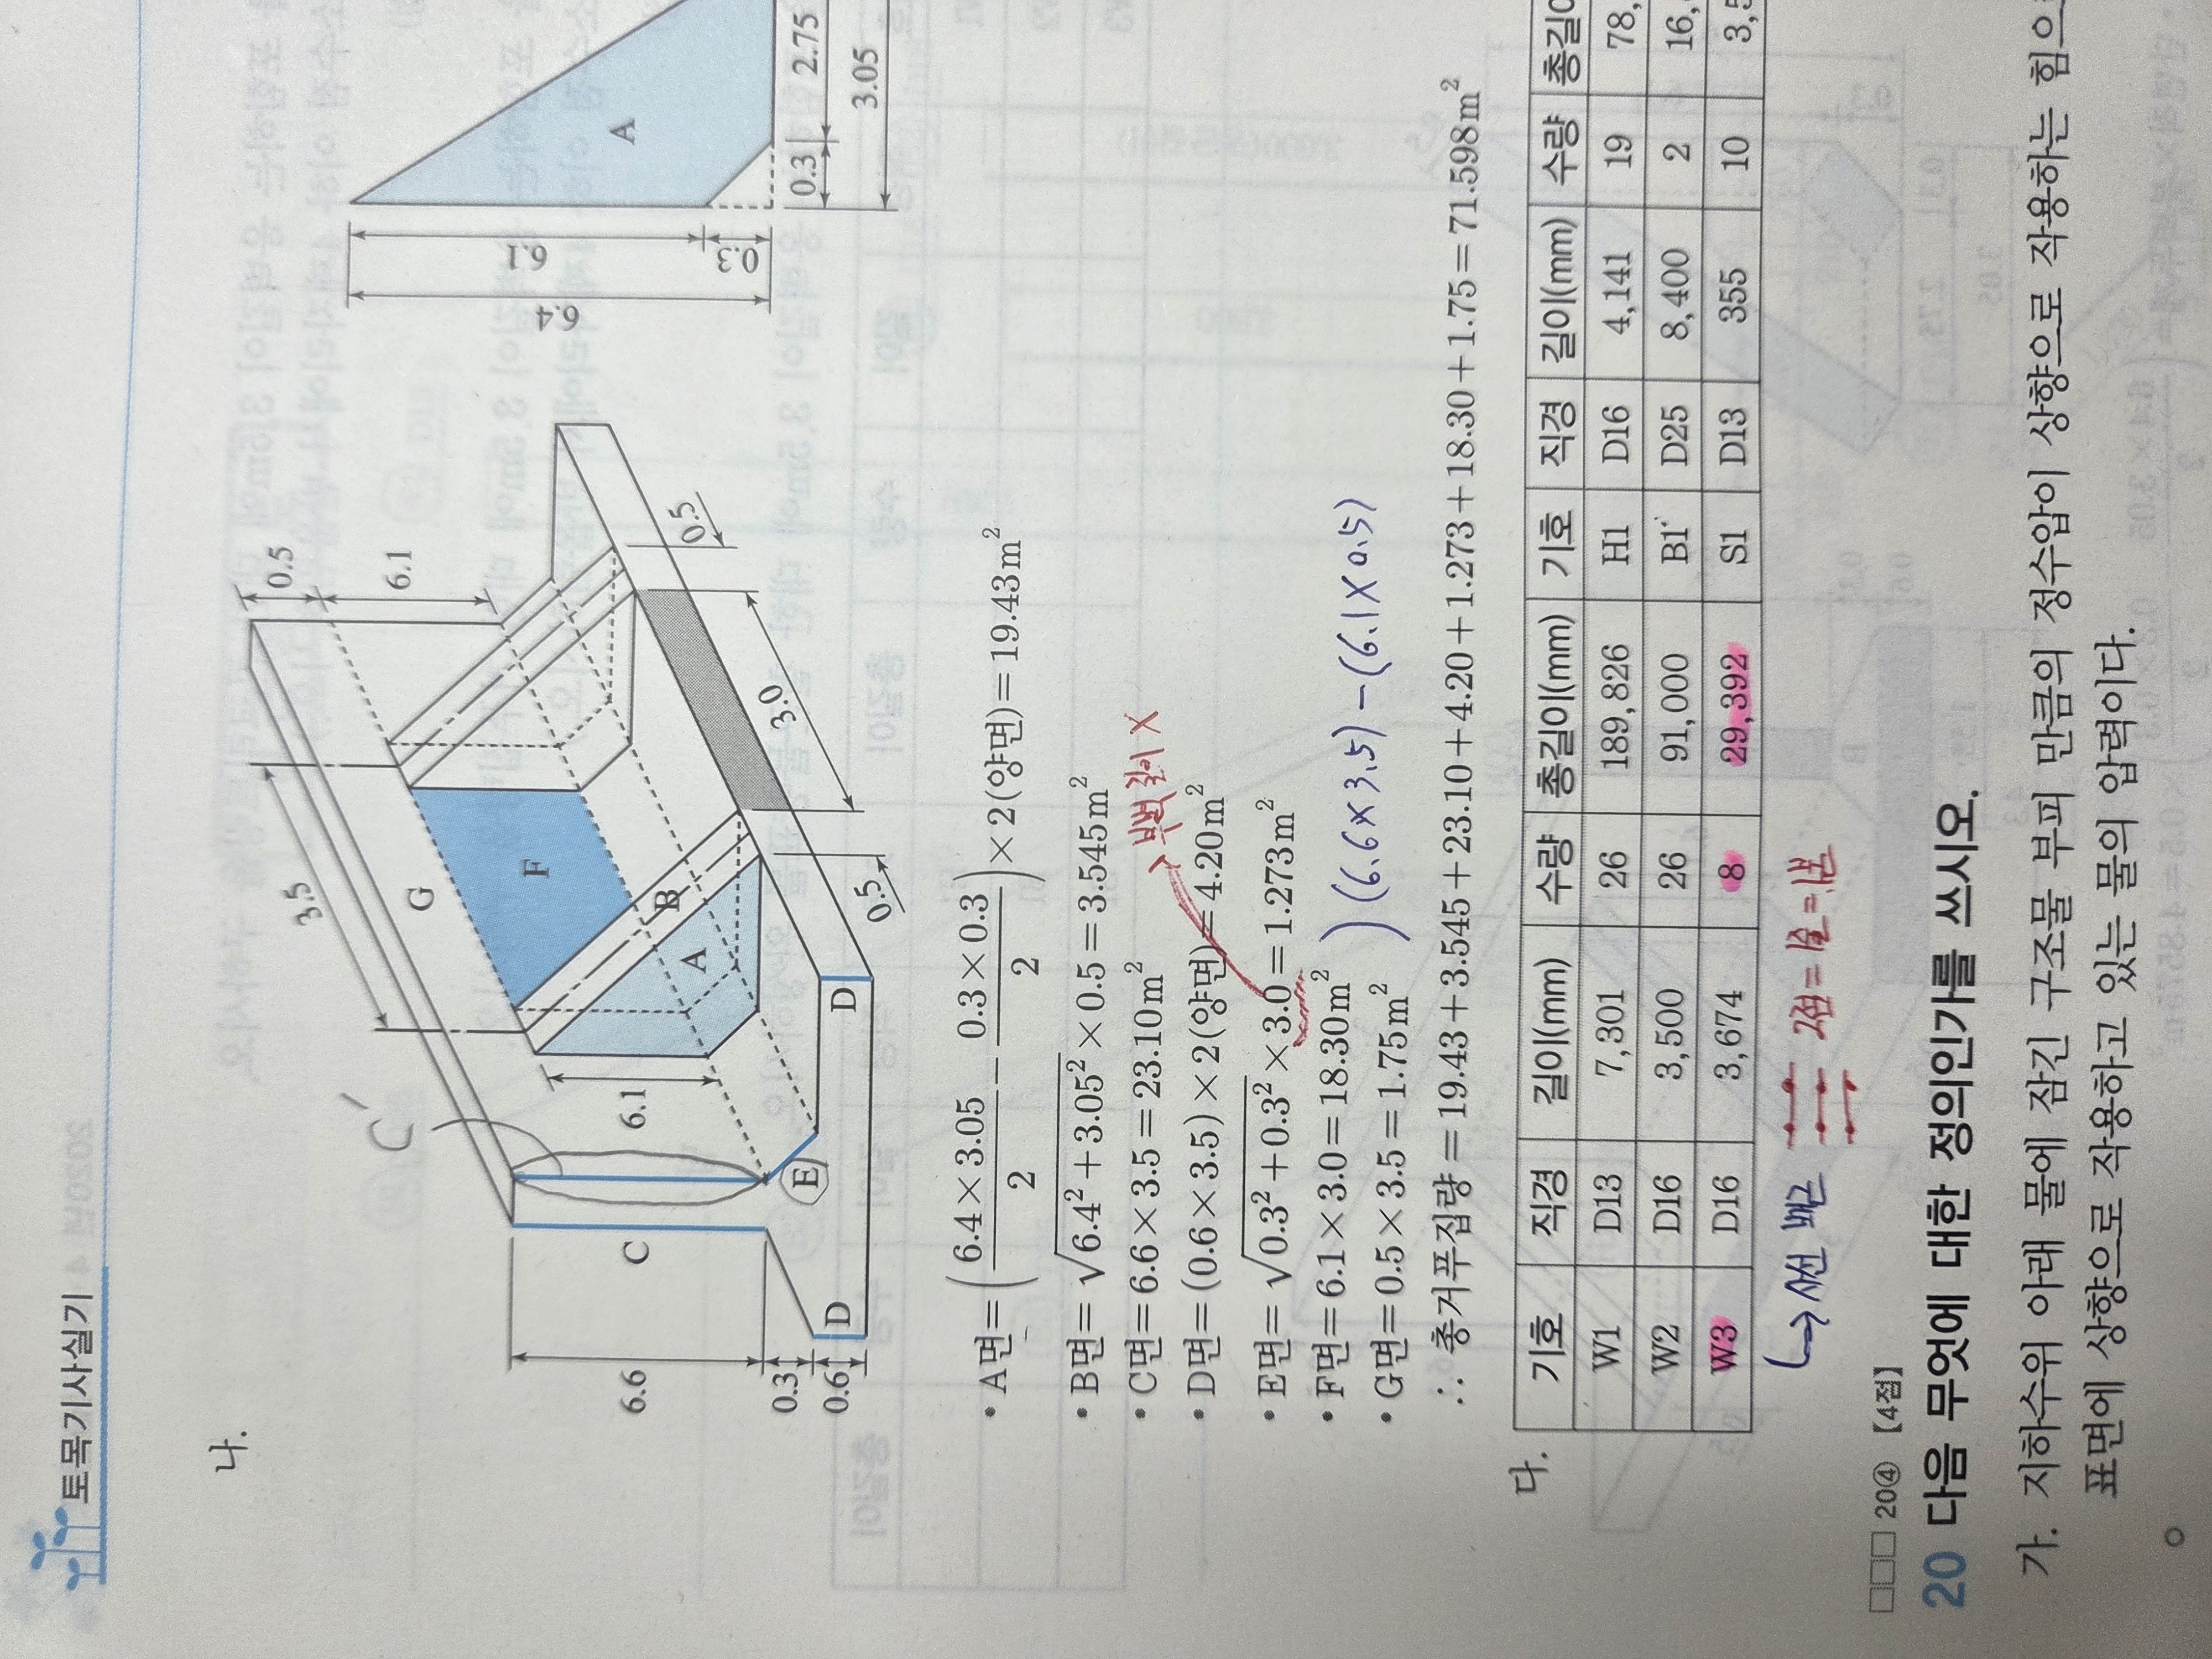 토목기사실기
나.
3.5
0.5
6.1
G
F
B
A
C′
6.1
C
6.6
E
D
D
0.3
0.6
0.5
3.0
0.5
6.4
6.1
0.3
A
0.3
2.75
3.05
• A면=(6.4×3.05/2 − 0.3×0.3/2)×2(양면)=19.43m²
• B면=√(6.4²+3.05²)×0.5=3.545m²
• C면=6.6×3.5=23.10m²
→ 부벽길이 X
• D면=(0.6×3.5)×2(양면)=4.20m²
• E면=√(0.3²+0.3²)×3.0=1.273m²
• F면=6.1×3.0=18.30m²
• G면=0.5×3.5=1.75m²
) (6.6×3.5)−(6.1×0.5)
∴ 총거푸집량=19.43+3.545+23.10+4.20+1.273+18.30+1.75=71.598m²
다.
기호 직경 길이(mm) 수량 총길이(mm) 기호 직경 길이(mm) 수량 총길이
W1 D13 7,301 26 189,826 H1 D16 4,141 19 78,
W2 D16 3,500 26 91,000 B1 D25 8,400 2 16,
W3 D16 3,674 8 29,392 S1 D13 355 10 3,5
→ 사선 빼곤
2점=1줄=1본
□□□ 20④ [4점]
20 다음 무엇에 대한 정의인가를 쓰시오.
가. 지하수위 아래 물에 잠긴 구조물 부피 만큼의 정수압이 상향으로 작용하는 힘으
표면에 상향으로 작용하고 있는 물의 압력이다.